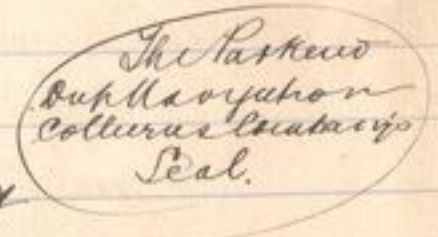 The Parkend
Deep Navigation
Collieries Company's
Seal.